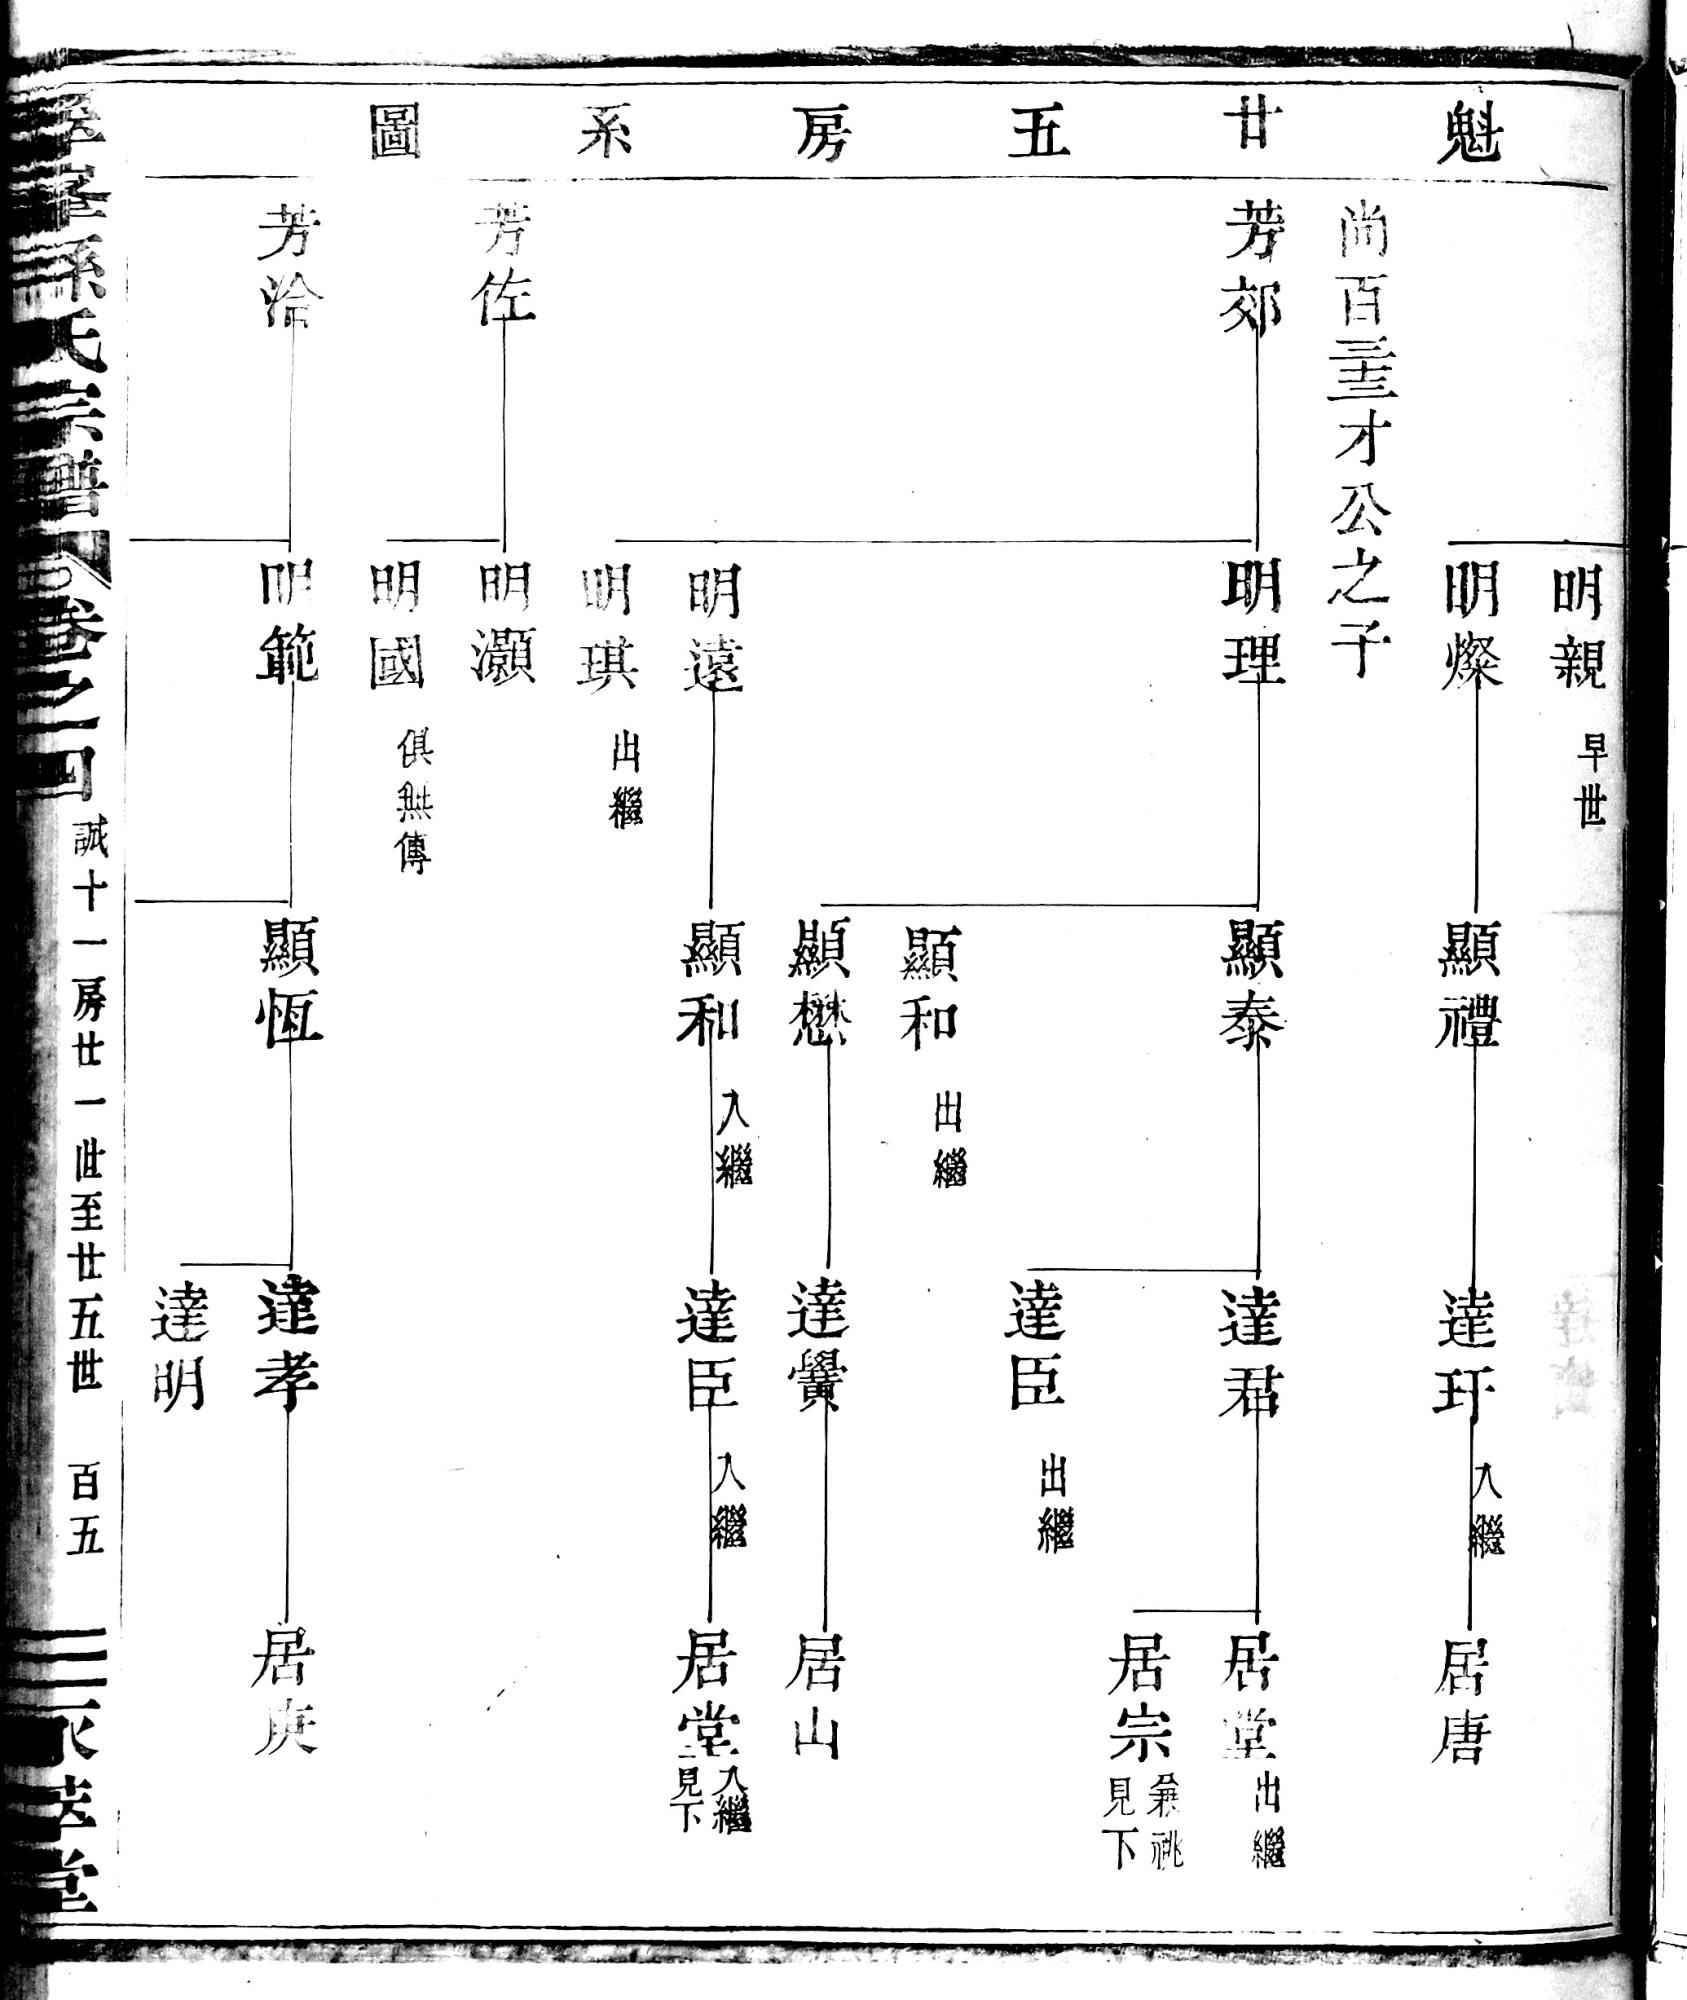 魁廿五房系圖
明親 早世
明燦
顯禮
達玕 入繼
居唐
尚百三十三才公之子
芳郊
明理
顯泰
達君
居堂 出繼
居宗 兼祧 見下
達臣 出繼
顯和 出繼
顯懋
達黌
居山
明遠
顯和 入繼
達臣 入繼
居堂 入繼 見下
明琪 出繼
芳佐
明灝
明國 俱無傳
芳洽
明範
顯恆
達孝
居庚
達明
孫氏宗譜 卷之四 誠十一房廿一世至廿五世 百五 萃堂